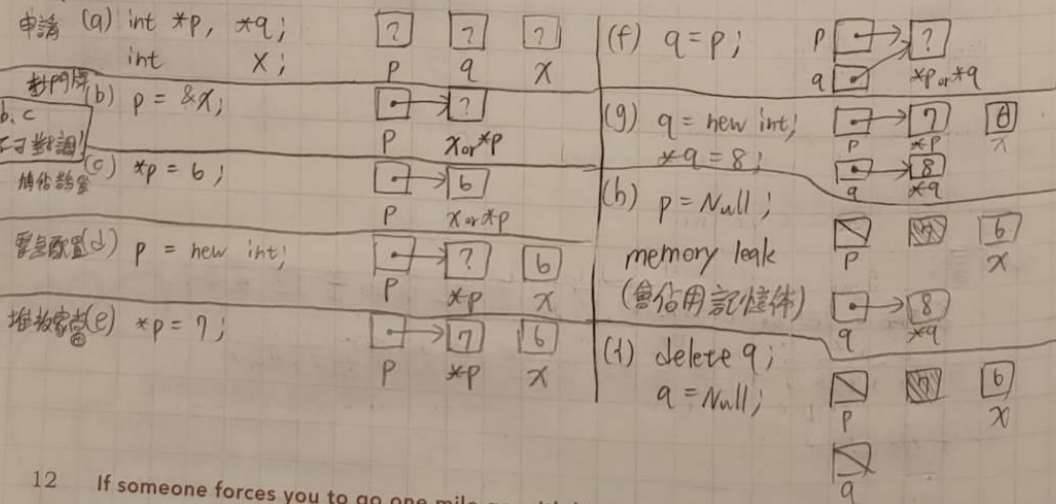 申請 (a) int *p, *q;
int x;
? ? ?
p q x
對門牌 (b) p = &x;
?
p x or *p
b、c
不可對調!
(c) *p = 6;
6
p x or *p
(d) p = new int;
? 6
p *p x
(e) *p = 7;
7 6
p *p x
(f) q = p;
p ?
q *p or *q
(g) q = new int;
*q = 8;
7 6
p *p x
8
q *q
(h) p = Null;
memory leak
(會佔用記憶体)
7 6
p x
8
q *q
(i) delete q;
q = Null;
7 6
p x
q
12 If someone forces you to go one mile